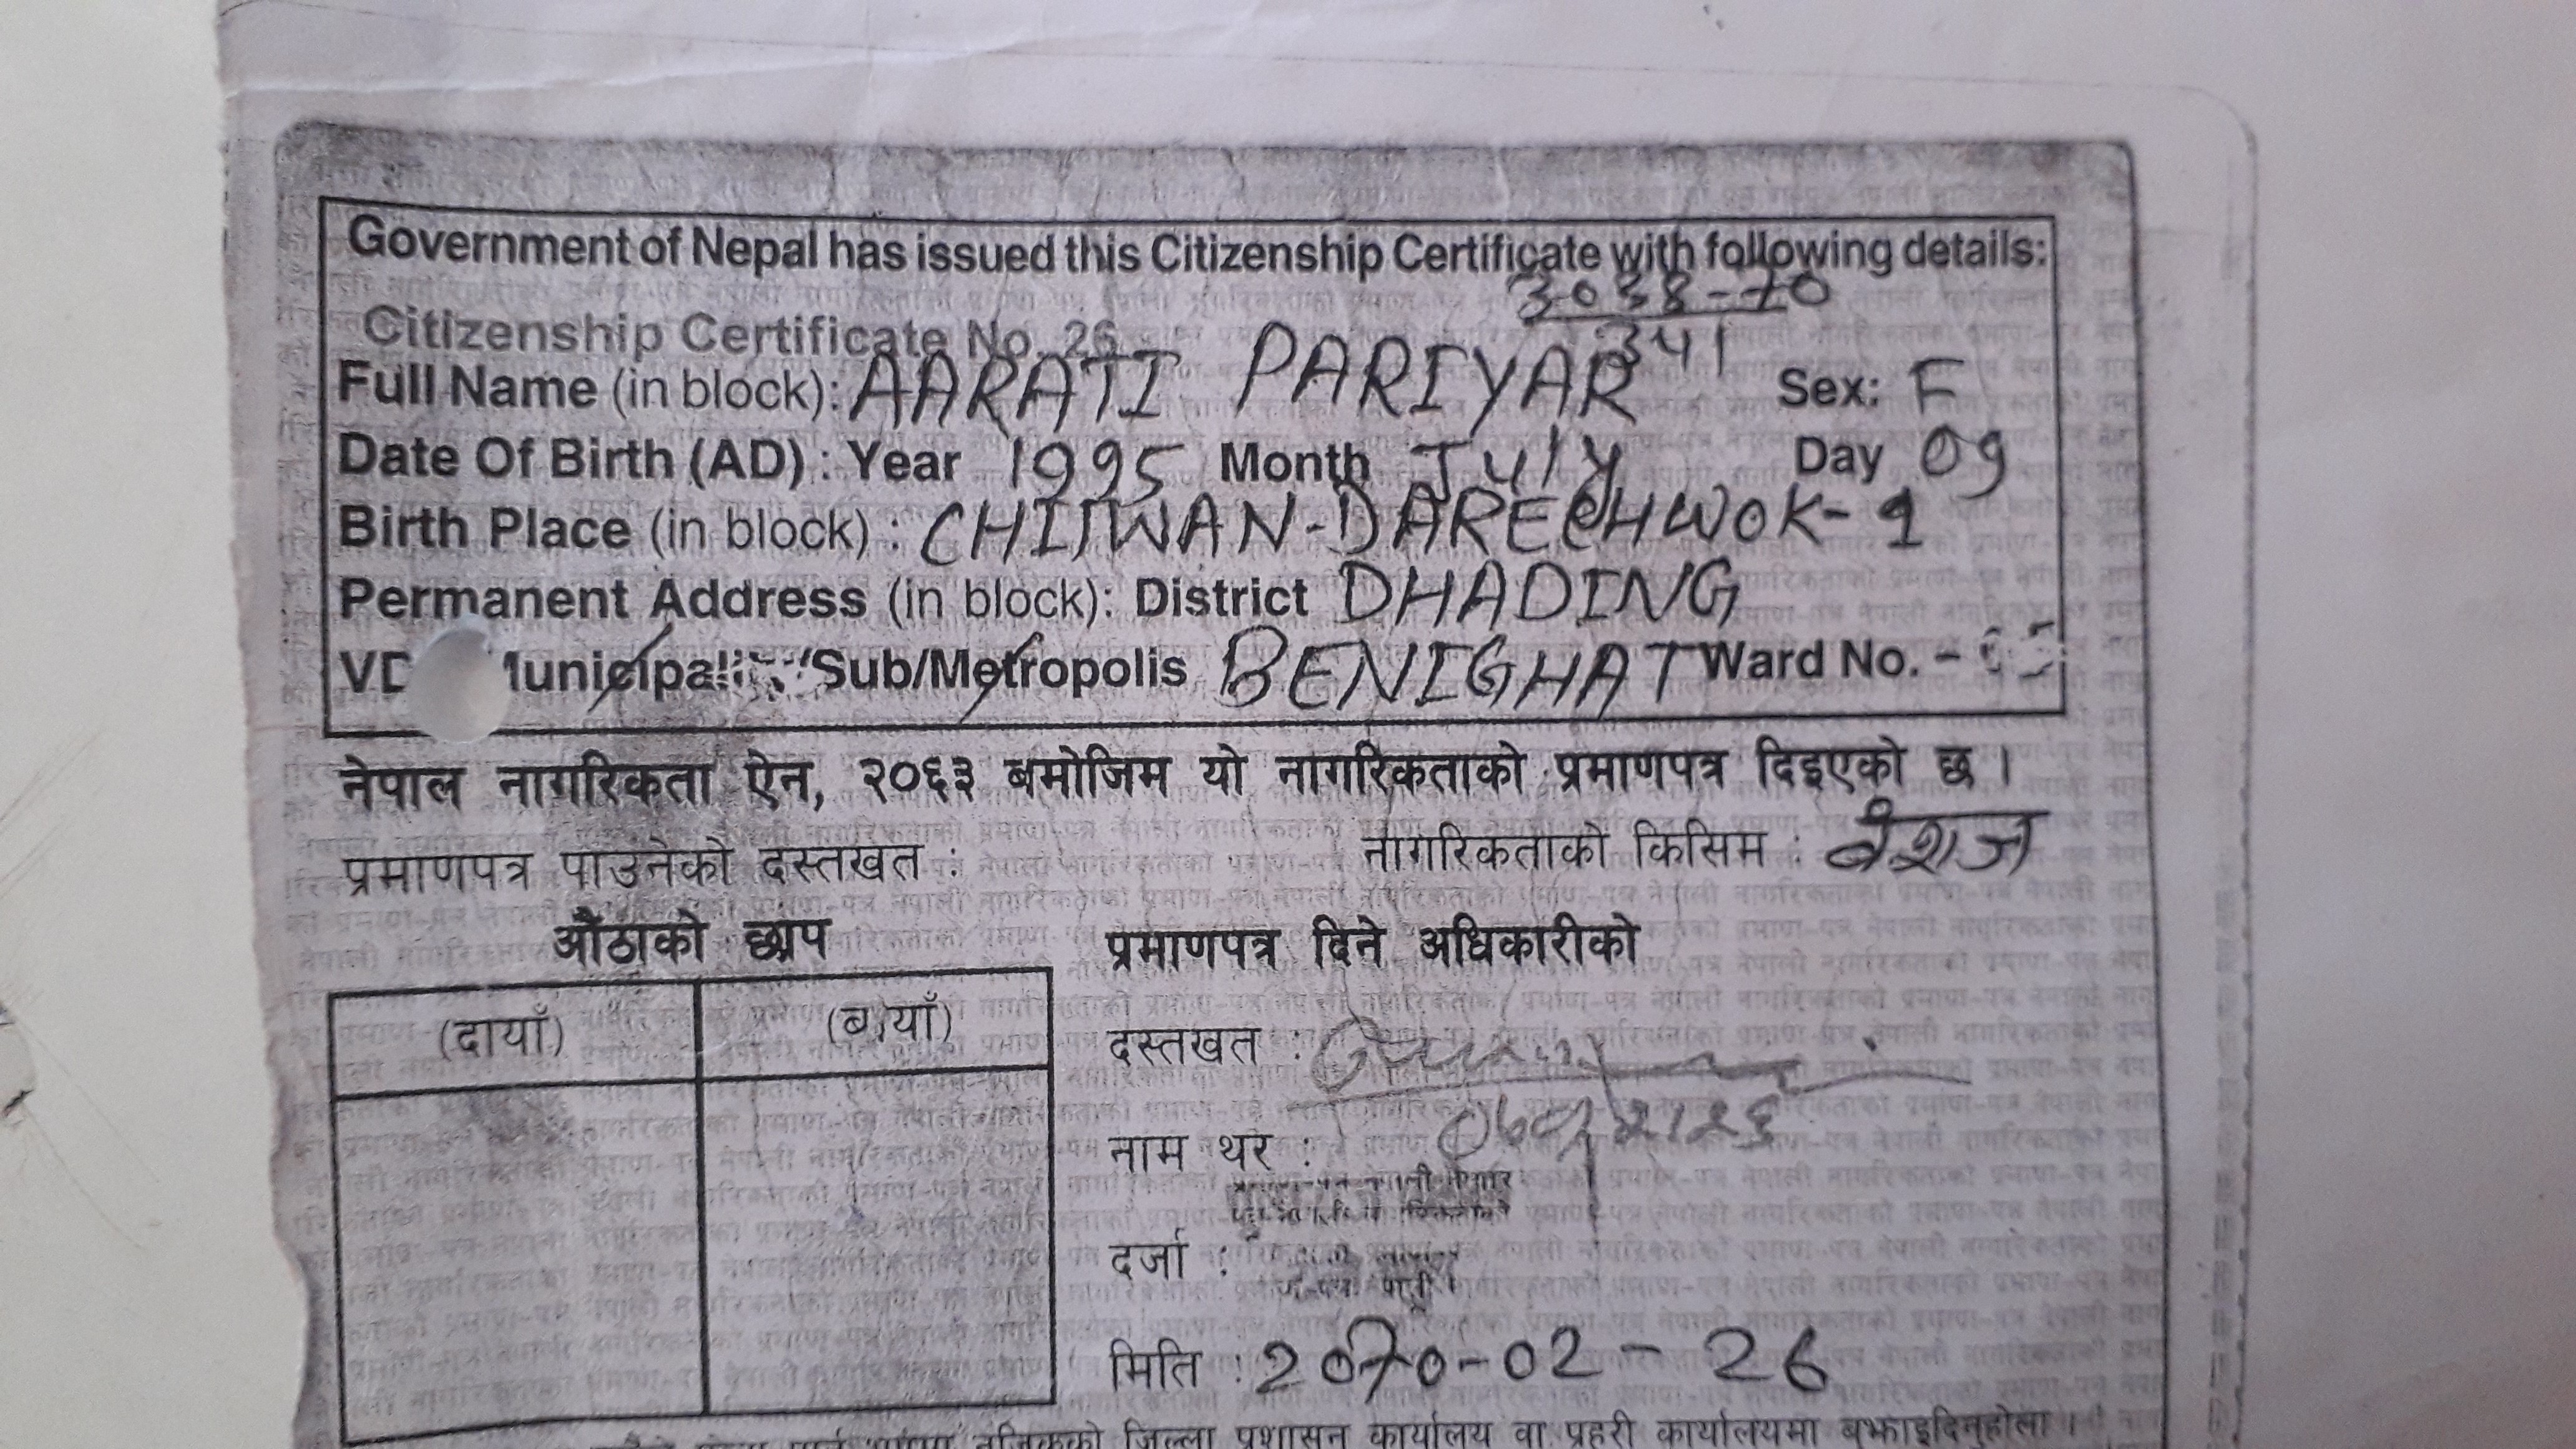 Government of Nepal has issued this Citizenship Certificate with following details:
Citizenship Certificate No. 26 3038-70
341
Full Name (in block): AARATI PARIYAR Sex: F
Date Of Birth (AD) : Year 1995 Month July Day 09
Birth Place (in block) : CHITWAN-DARECHWOK-9
Permanent Address (in block): District DHADING
Sub/Metropolis BENIGHAT Ward No. -
नेपाल नागरिकता ऐन, २०६३ बमोजिम यो नागरिकताको प्रमाणपत्र दिइएको छ ।
प्रमाणपत्र पाउनेको दस्तखत : नागरिकताको किसिम : वंशज
औंठाको छाप प्रमाणपत्र दिने अधिकारीको
(दायाँ) (बायाँ)
दस्तखत :
नाम थर :
दर्जा :
मिति : 2070-02-26
नजिकको जिल्ला प्रशासन कार्यालय वा प्रहरी कार्यालयमा बुझाइदिनुहोला ।